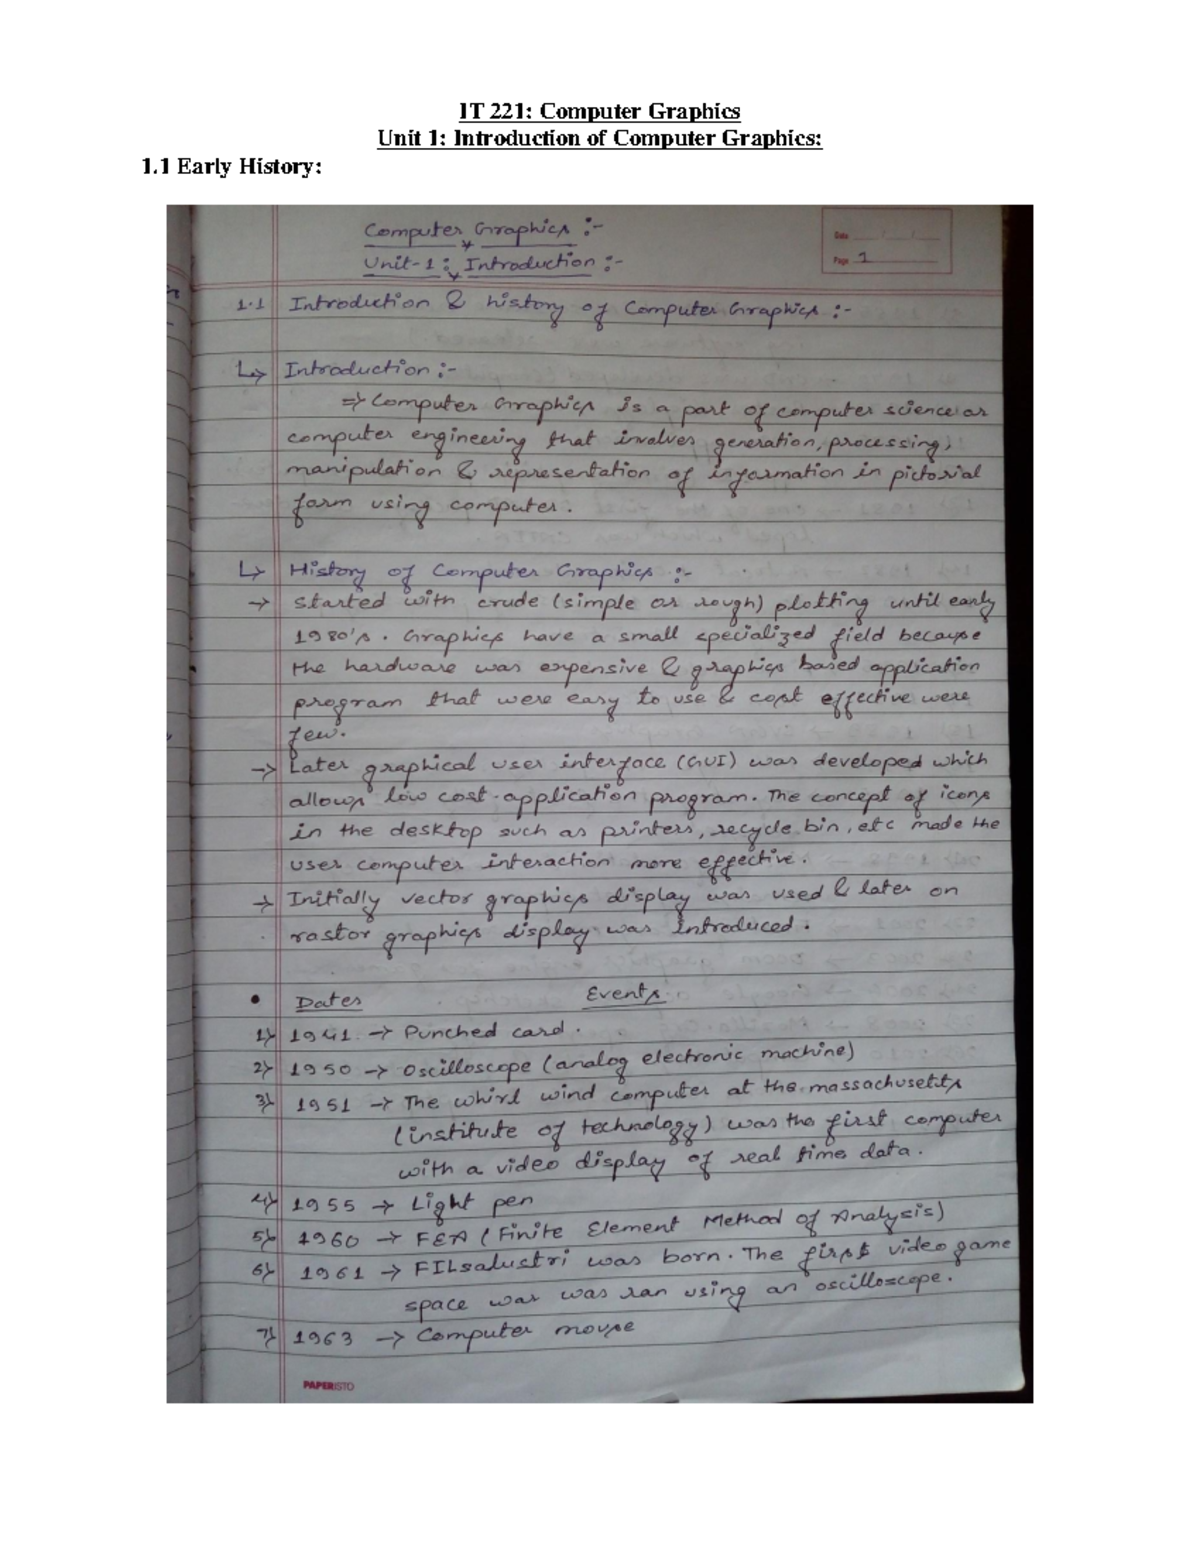 IT 221: Computer Graphics
Unit 1: Introduction of Computer Graphics:
1.1 Early History:
Computer Graphics :-
Date / /
Unit-1 : Introduction :-
Page 1
1.1 Introduction & history of Computer Graphics :-
Introduction :-
=> Computer Graphics is a part of computer science or
computer engineering that involves generation, processing,
manipulation & representation of information in pictorial
form using computer.
History of Computer Graphics :-
→ started with crude (simple or rough) plotting until early
1980's. Graphics have a small specialized field because
the hardware was expensive & graphics based application
program that were easy to use & cost effective were
few.
→ Later graphical user interface (GUI) was developed which
allows low cost application program. The concept of icons
in the desktop such as printers, recycle bin, etc made the
user computer interaction more effective.
→ Initially vector graphics display was used & later on
rastor graphics display was introduced.
• Dates Events
1) 1941 → Punched card.
2) 1950 → Oscilloscope (analog electronic machine)
3) 1951 → The whirl wind computer at the massachusetts
(institute of technology) was the first computer
with a video display of real time data.
4) 1955 → Light pen
5) 1960 → FEA (Finite Element Method of Analysis)
6) 1961 → was born. The first video game
space war was ran using an oscilloscope.
7) 1963 → Computer mouse
PAPERISTO